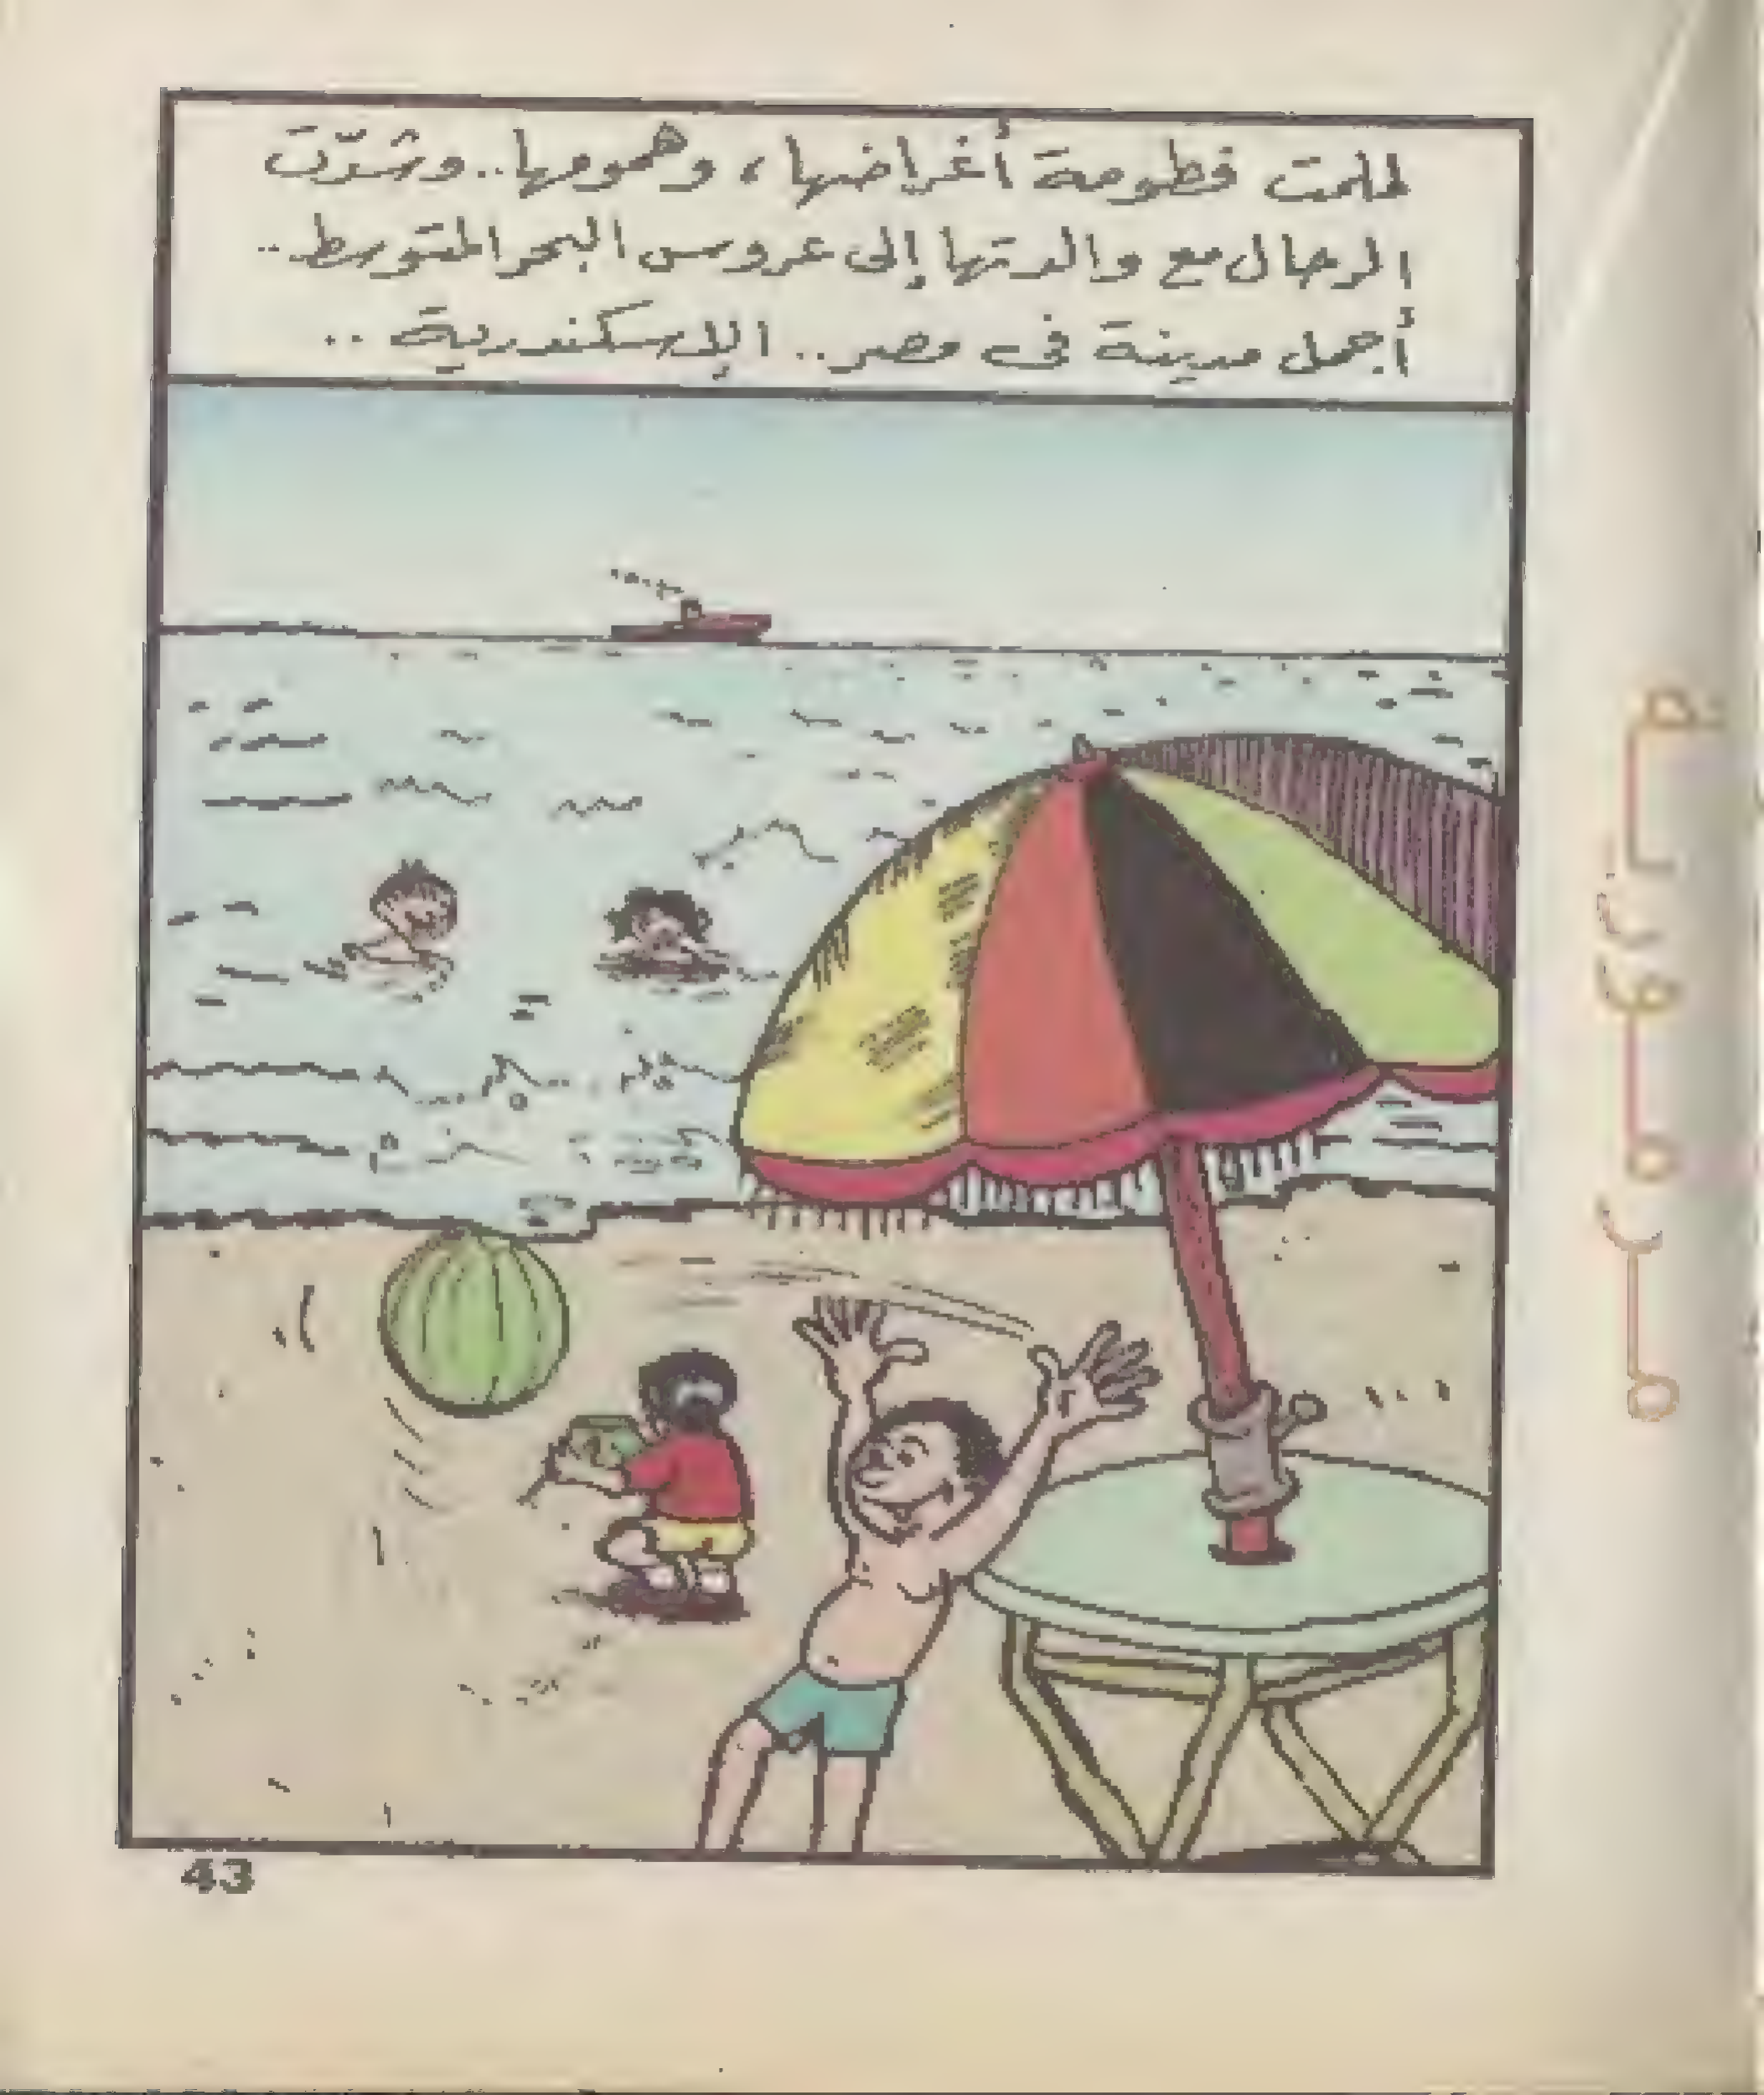 لملمت فطومة أغراضها، وهمومها.. وشدّت
الرحال مع والدتها إلى عروس البحر المتوسط..
أجمل مدينة فى مصر.. الإسكندرية ..
43